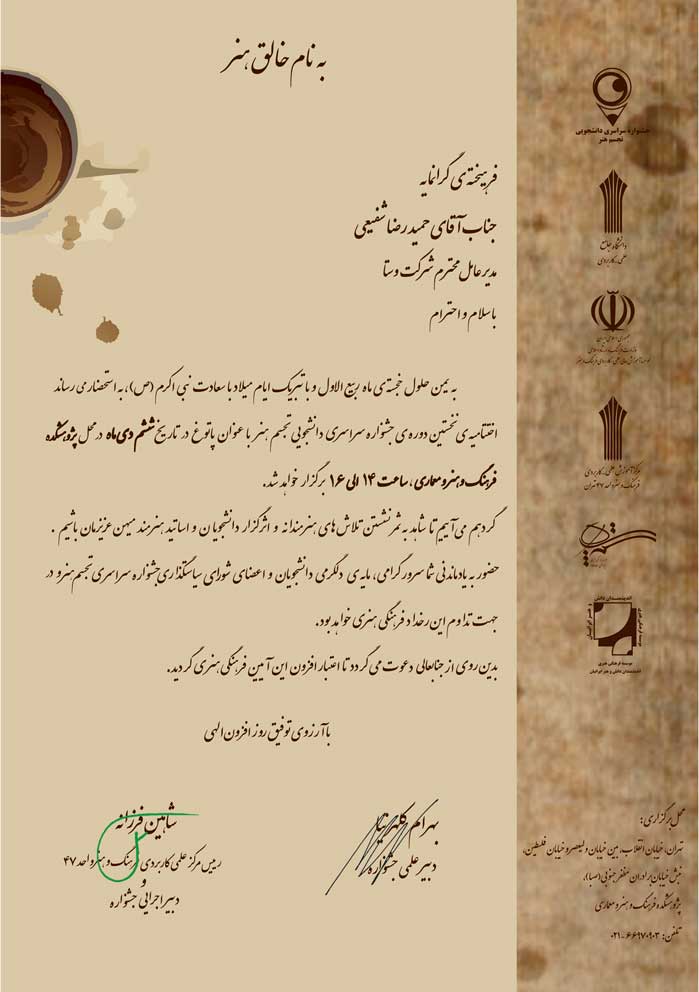 به نام خالق هنر
فرهیخته‌ی گرانمایه
جناب آقای حمیدرضا شفیعی
مدیرعامل محترم شرکت وستا
با سلام و احترام
به یمن حلول خجسته‌ی ماه ربیع الاول و با تبریک ایام میلاد با سعادت نبی اکرم (ص)، به استحضار می رساند
اختتامیه‌ی نخستین دوره‌ی جشنواره سراسری دانشجویی تجسم هنر با عنوان پاتوغ در تاریخ ششم دی ماه در محل پژوهشکده
فرهنگ و هنر و معماری، ساعت ۱۴ الی ۱۶ برگزار خواهد شد.
گرد هم می‌آییم تا شاهد به ثمر نشستن تلاش های هنرمندانه و اثرگذار دانشجویان و اساتید هنرمند میهن عزیزمان باشیم .
حضور به یادماندنی شما سرور گرامی، مایه ی دلگرمی دانشجویان و اعضای شورای سیاستگذاری جشنواره سراسری تجسم هنر و در
جهت تداوم این رخداد فرهنگی هنری خواهد بود.
بدین روی از جنابعالی دعوت می گردد تا اعتبار افزون این آیین فرهنگی هنری گردید.
با آرزوی توفیق روز افزون الهی
بهرام کلهرنیا
دبیر علمی جشنواره
شاهین فرزانه
رییس مرکز علمی کاربردی فرهنگ و هنر واحد ۴۷
و
دبیر اجرایی جشنواره
جشنواره سراسری دانشجویی
تجسم هنر
دانشگاه جامع
علمی - کاربردی
جمهوری اسلامی ایران
وزارت فرهنگ و ارشاد اسلامی
مرکز آموزش علمی - کاربردی
فرهنگ و هنر واحد ۴۷ تهران
اندیشمندان دانش
و هنر ایرانیان
موسسه فرهنگی هنری
موسسه فرهنگی هنری
اندیشمندان دانش و هنر ایرانیان
محل برگزاری:
تهران، خیابان انقلاب، بین خیابان ولیعصر و خیابان فلسطین،
نبش خیابان برادران مظفر جنوبی (صبا)،
پژوهشکده فرهنگ و هنر و معماری
تلفن: ۶۶۹۷۰۹۰۳-۰۲۱